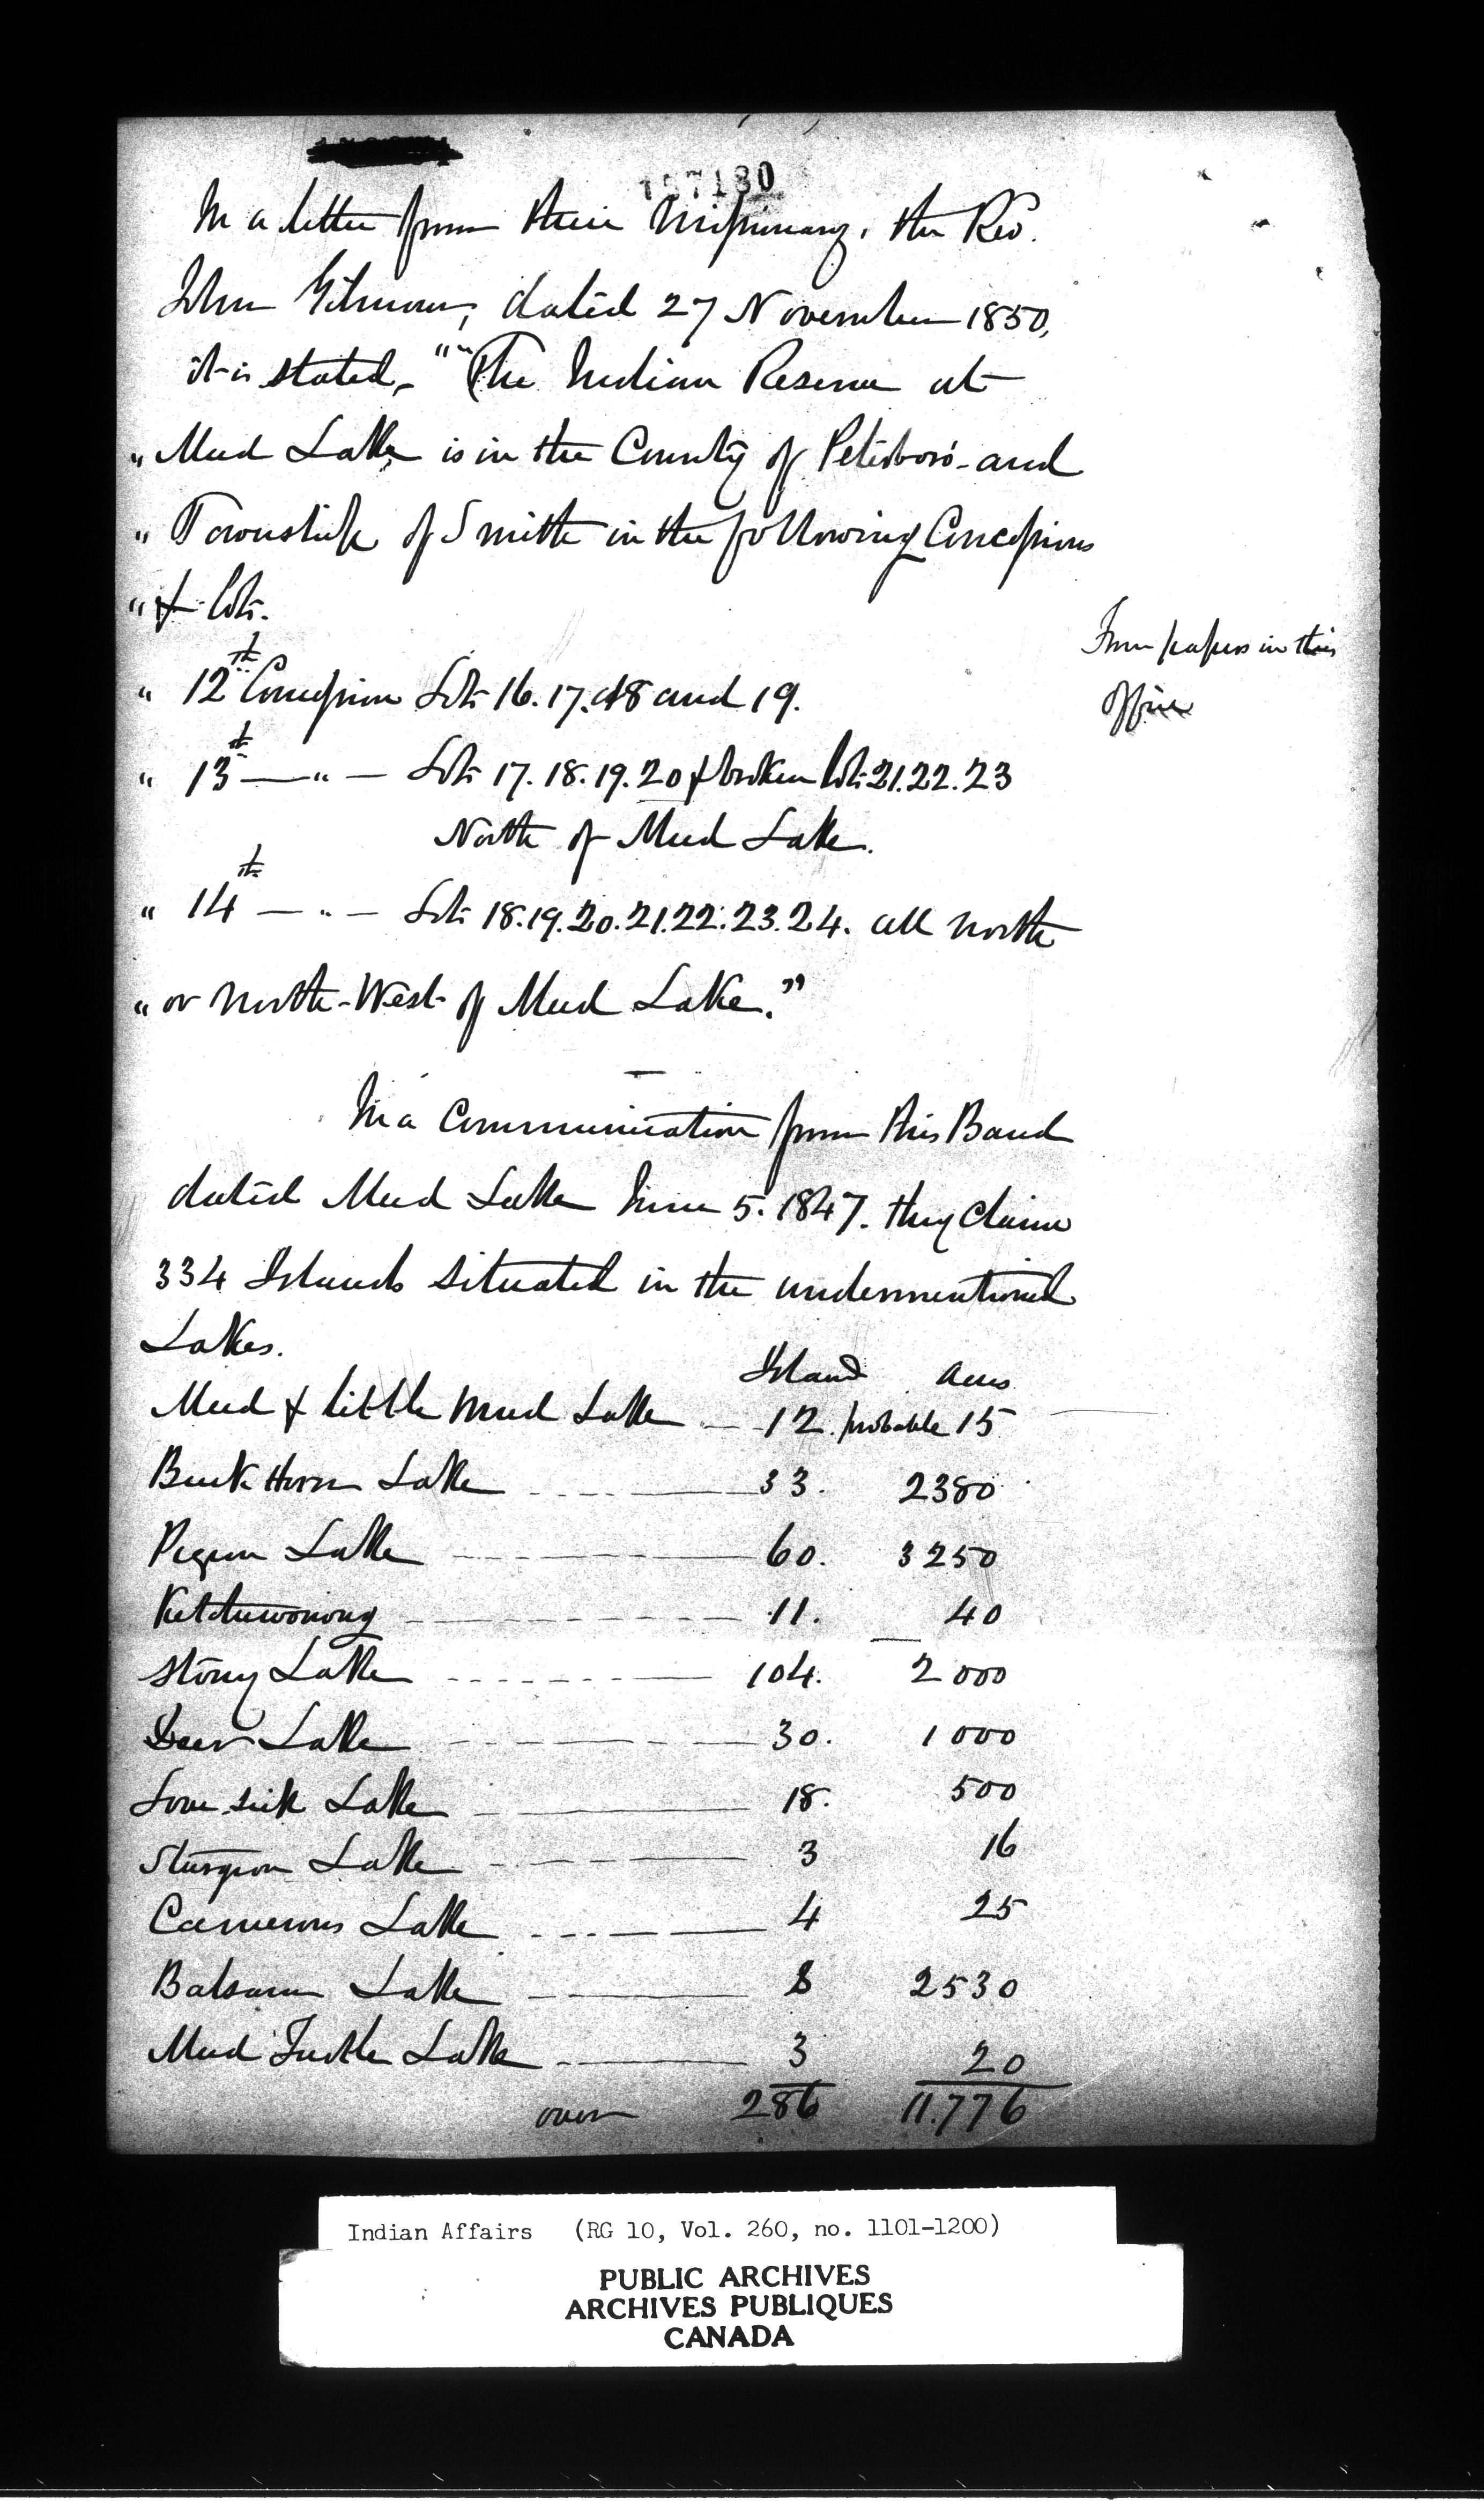 157180
In a letter from their Missionary, the Rev.
John Gilmour, dated 27 November 1850,
it is stated, "The Indian Reserve at
" Mud Lake is in the County of Peterboro' and
" Township of Smith in the following Concessions
" & lots.
" 12th Concession Lots 16. 17. 18 and 19.
From papers in this
office
" 13th — " — Lots 17. 18. 19. 20 & broken lots 21. 22. 23
North of Mud Lake.
" 14th — " — Lots 18. 19. 20. 21. 22. 23. 24. all north
" or North-West of Mud Lake."
In a Communication from this Band
dated Mud Lake June 5. 1847. they claim
334 Islands situated in the undermentioned
Lakes.
Island acres
Mud & little Mud Lake — 12. probable 15
Buck Horn Lake — 33. 2380
Pigeon Lake — 60. 3250
Ketchuwonong — 11. 40
Stony Lake — 104. 2000
Deer Lake — 30. 1000
Love sick Lake — 18. 500
Sturgeon Lake — 3 16
Camerons Lake — 4 25
Balsam Lake — 8 2530
Mud Turtle Lake — 3 20
over 286 11.776
Indian Affairs (RG 10, Vol. 260, no. 1101-1200)
PUBLIC ARCHIVES
ARCHIVES PUBLIQUES
CANADA